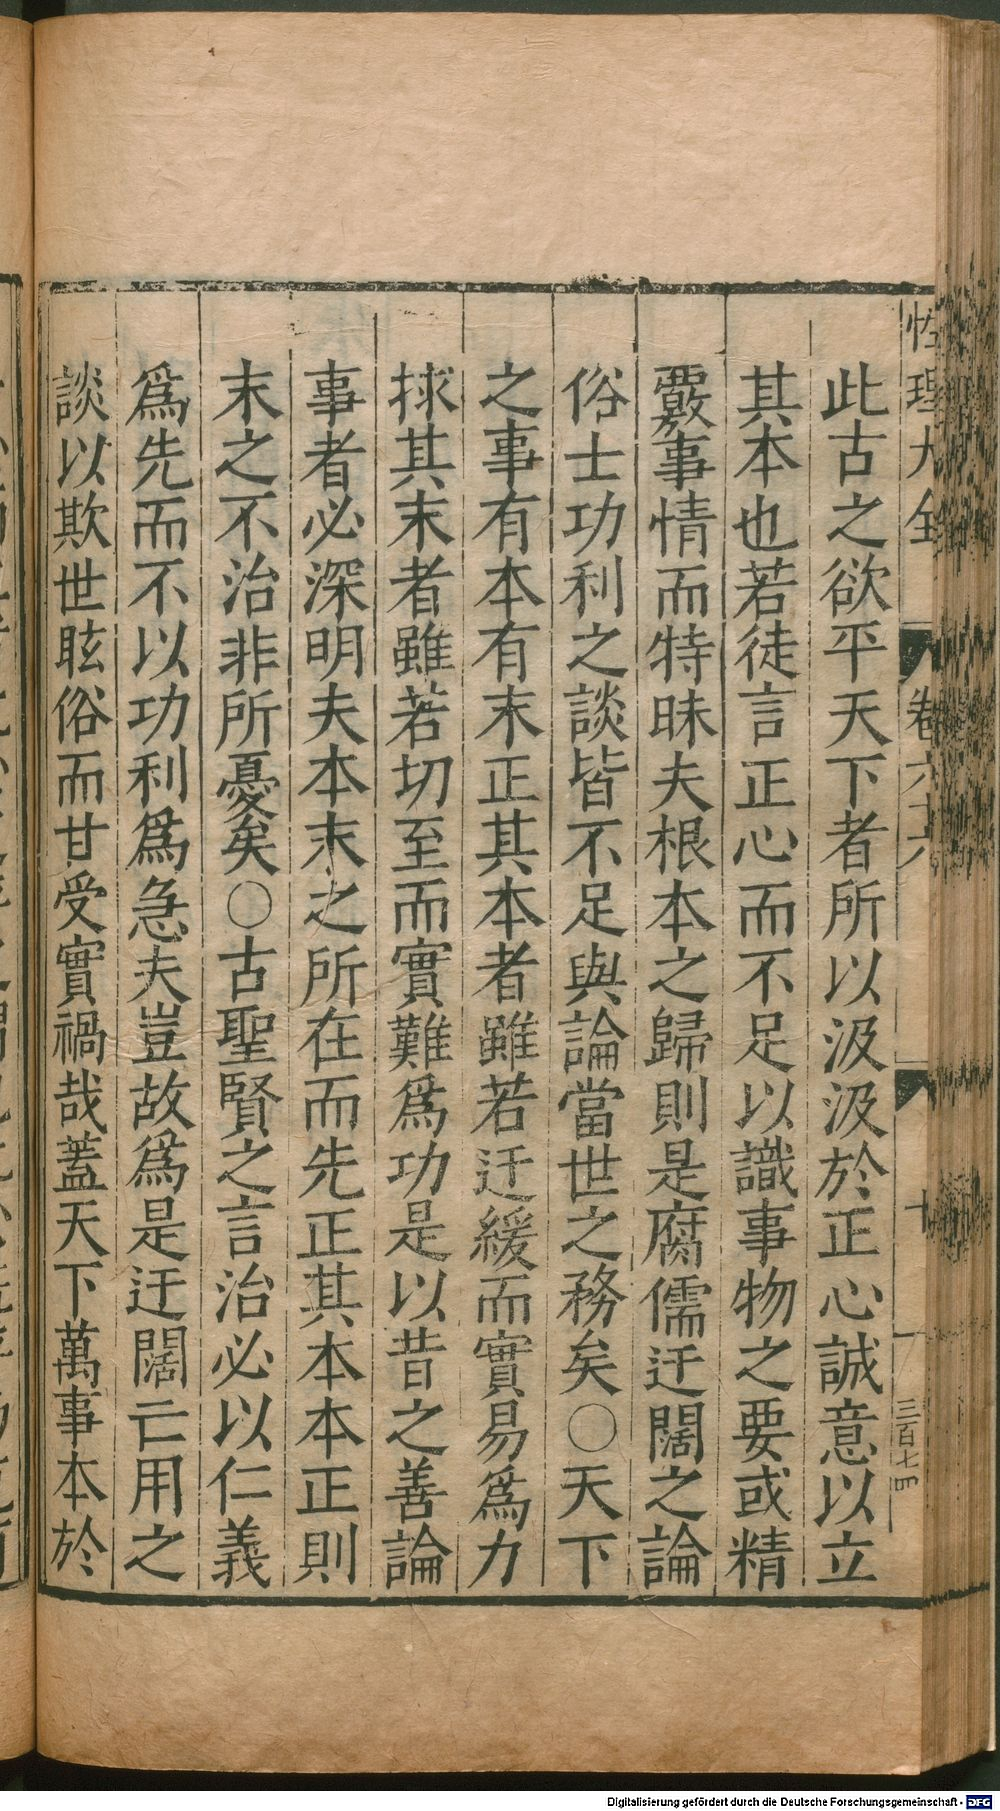 性理大全
卷六十八
十
三百七四
此古之欲平天下者所以汲汲於正心誠意以立
其本也若徒言正心而不足以識事物之要或精
覈事情而特昧夫根本之歸則是腐儒迂闊之論
俗士功利之談皆不足與論當世之務矣○天下
之事有本有末正其本者雖若迂緩而實易爲力
捄其末者雖若切至而實難爲功是以昔之善論
事者必深明夫本末之所在而先正其本本正則
末之不治非所憂矣○古聖賢之言治必以仁義
爲先而不以功利爲急夫豈故爲是迂闊亡用之
談以欺世眩俗而甘受實禍哉蓋天下萬事本於
Digitalisierung gefördert durch die Deutsche Forschungsgemeinschaft - DFG